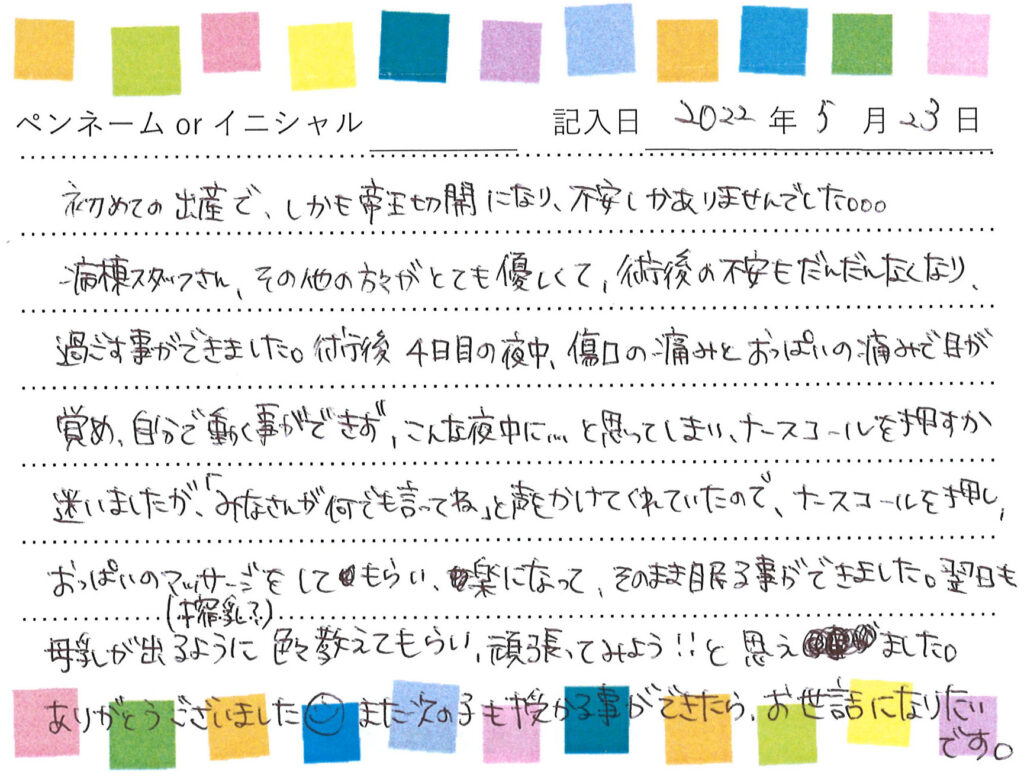 ペンネーム or イニシャル 記入日 2022 年 5 月 23 日
初めての出産で、しかも帝王切開になり、不安しかありませんでした。。。
病棟スタッフさん、その他の方々がとても優しくて、術後の不安もだんだんなくなり、
過ごす事ができました。術後 4日目の夜中、傷口の痛みとおっぱいの痛みで目が
覚め、自分で動く事ができず、こんな夜中に… と思ってしまい、ナースコールを押すか
迷いましたが、「みなさんが何でも言ってね」と声をかけてくれていたので、ナースコールを押し、
おっぱいのマッサージをしてもらい、楽になって、そのまま眠る事ができました。翌日も
(搾乳?)
母乳が出るように色々教えてもらい、頑張ってみよう!!と思えました。
ありがとうございました また次の子も授かる事ができたら、お世話になりたい
です。